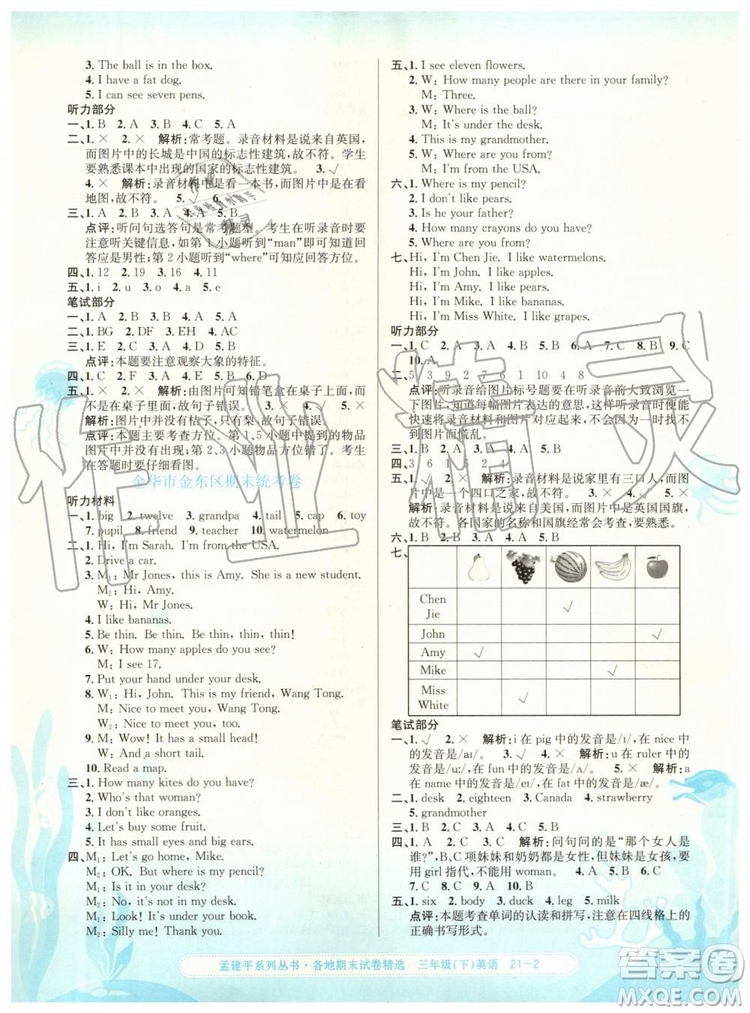 3. The ball is in the box.
4. I have a fat dog.
5. I can see seven pens.
听力部分
一、1. B 2. A 3. B 4. C 5. A
二、1. × 2. × 解析：常考题。录音材料是说来自英国，
而图片中的长城是中国的标志性建筑，故不符。学生
要熟悉课本中出现的国家的标志性建筑。 3. √
4. × 解析：录音材料是看一本书，而图片中是在看
地图，故不符。 5. √
三、1. A 2. B 3. C 4. B 5. A
点评：听问句选答句是常考题型。考生在听录音时要
注意听关键信息，如第1小题听到“man”即可知回
答应是男性；第2小题听到“where”可知应回答方位。
四、1. 12 2. 19 3. 16 4. 11
五、1. i 2. u 3. o 4. a 5. e
笔试部分
一、1. B 2. A 3. B 4. C 5. A
二、1. BG 2. DF 3. EH 4. AC
三、1. B 2. B 3. B
点评：本题要注意观察大象的特征。
四、1. C 2. D 3. B 4. A
五、1. × 2. × 解析：由图片可知铅笔盒在桌子上面，
而不是在桌子里面，故句子错误。 3. √ 4. √
5. × 解析：由图片可知桔子，故句子错误。
点评：本题主要考查方位。第1、5小题出现的物品
图片中并没有出现，第2、3小题出现的物品图片中
有，但是方位要仔细看图。
金华市金东区期末统考卷
听力材料
一、1. big 2. twelve 3. grandpa 4. tail 5. cap 6. toy
7. pupil 8. teacher 9. tall 10. watermelon
二、1. Hi, I'm Sarah. I'm from the USA.
2. Drive a car.
3. M₁: Mr Jones, this is Amy. She is a new student.
M₂: Hi, Amy.
W: Hi, Mr Jones.
4. I like bananas.
5. Be thin. Be thin. Be thin, thin, thin!
6. W: How many apples do you see?
M: I see 17.
7. Put your hand under your desk.
8. W₁: Hi, John. This is my friend, Wang Tong.
M: Nice to meet you, Wang Tong.
W₂: Nice to meet you, too.
9. M: Wow! It has a small head!
W: And a short tail.
10. Read a map.
三、1. How many kites do you have?
2. Who's that woman?
3. I don't like oranges.
4. Let's buy some fruit.
5. It has small eyes and big ears.
四、M₁: Let's go home, Mike.
M₂: OK. But where is my pencil?
M₁: Is it in your desk?
M₂: No, it's not in my desk.
M₁: Look! It's under your book.
M₂: Thank you!
五、1. I see eleven flowers.
2. W: How many people are there in your family?
M: Three.
3. W: Where is the ball?
M: It's under the desk.
4. W: This is my grandmother.
5. M: I'm from the USA.
六、1. Where is my pencil?
2. Do you like pears?
3. Is he your father?
4. How many crayons do you have?
5. Where are you from?
七、Hi, I'm Chen Jie. I like watermelons.
Hi, I'm John. I like apples.
Hi, I'm Amy. I like pears.
Hi, I'm Mike. I like bananas.
Hi, I'm Miss White. I like grapes.
听力部分
一、1. C 2. A 3. C 4. A 5. B 6. A 7. C 8. B 9. B
10. A
二、5 3 9 2 7 6 10 1 4 8
点评：听录音给图片标号题要在听录音前大致浏览一
下图片，知道每幅图片表达的意思，这样听录音时便能
快速将录音材料与图片对应起来，不会因为
图片而慌乱。
三、1. B 2. A 3. C 4. A 5. B
四、3 6 1 5 2 4
五、1. √ 2. × 解析：录音材料是说家里有三口人，而
图片中是一个四口之家，故不符。 3. √ 4. √
5. × 解析：录音材料是说来自美国，而图片是英国国旗，
故不符。各国家的名称和国旗经常会考，要熟悉。
六、1. B 2. A 3. B 4. A 5. C
七、
Chen Jie √
John √
Amy √
Mike √
Miss White √
笔试部分
一、1. √ 2. × 解析：i 在 pig 中的发音是/ɪ/，在 five
中的发音是/aɪ/。 3. √ 4. × 解析：u 在 ruler 中
的发音是/uː/，在 duck 中的发音是/ʌ/。 5. × 解析：a
在 name 中的发音是/eɪ/，在 dad 中的发音是/æ/。
二、1. desk 2. eighteen 3. Canada 4. strawberry
5. grandmother
三、1. B 2. C 3. A 4. C 5. B
四、1. B 2. C 3. A 解析：问句问的是“那个女人是
谁？”，B、C项妹妹和奶奶都是女性，但妹妹还是女孩，要
用 girl 指代，不能用 woman。 4. A 5. B 6. B
7. C 8. C 9. B 10. A
五、1. six 2. body 3. duck 4. leg 5. milk
点评：本题考查单词的认读和拼写，应注意在四线格上的
书写格式。
孟建平系列丛书·各地期末试卷精选 三年级(下)英语 21-2
作业精灵
答案圈
MXQE.COM